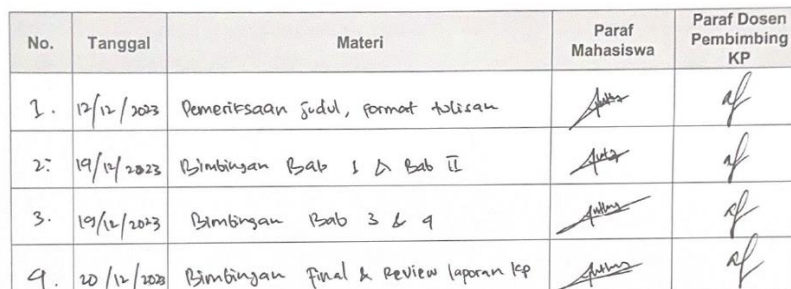 No. Tanggal Materi Paraf Mahasiswa Paraf Dosen Pembimbing KP
1. 12/12/2023 Pemeriksaan judul, format tulisan
2. 19/12/2023 Bimbingan Bab 1 & Bab II
3. 19/12/2023 Bimbingan Bab 3 & 4
4. 20/12/2023 Bimbingan Final & Review laporan KP